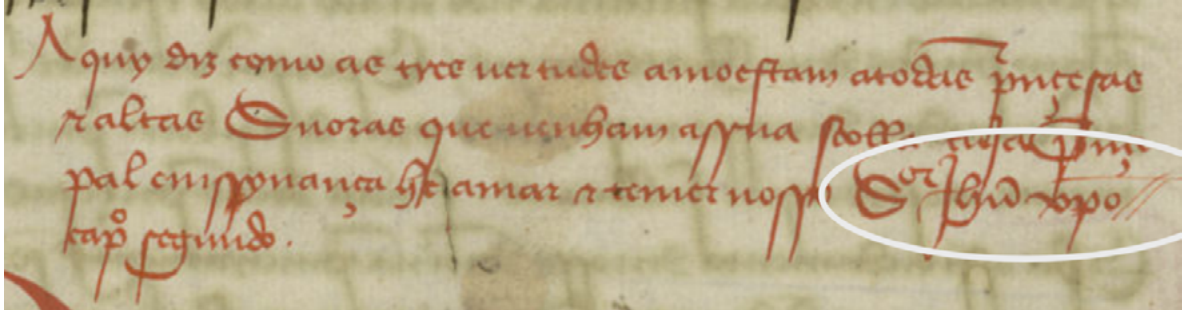 Aquy diz como as tres uertudes amoestam atodas p̃ncesas
⁊ altas Sñoras que uenham assua scolla cuja prĩçi
pal emssynança he amar ⁊ temer nosso Sor Jhũ xpo
capo segundo.